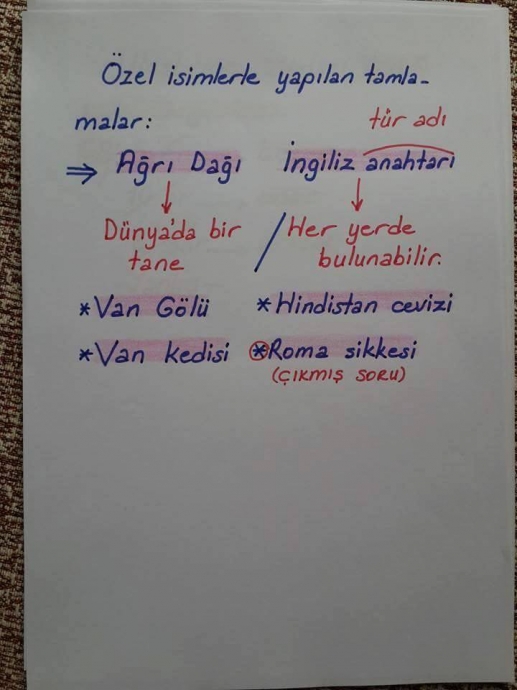 Özel isimlerle yapılan tamla-
malar:
tür adı
⇒ Ağrı Dağı İngiliz anahtarı
Dünya'da bir tane / Her yerde bulunabilir.
*Van Gölü *Hindistan cevizi
*Van kedisi *Roma sikkesi
(ÇIKMIŞ SORU)